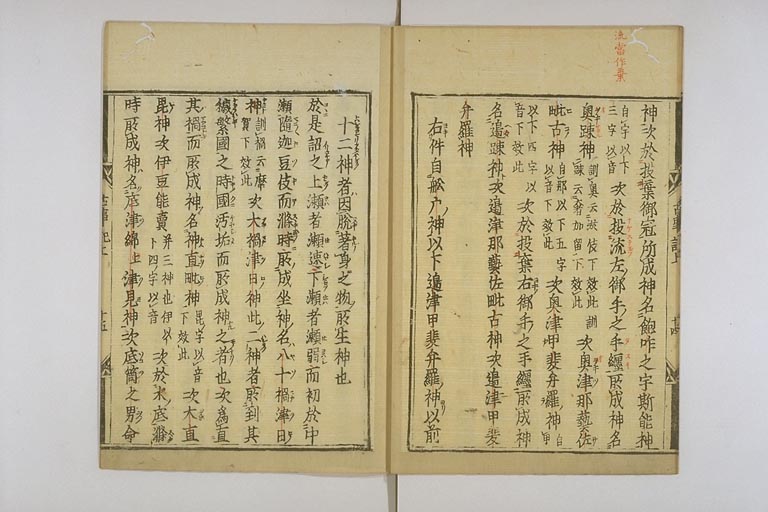 流當作棄
神次於投棄御冠所成神名飽咋之宇斯能神
自宇以下三字以音次於投流左御手之手纏所成神名
奥踈神訓奥云淤伎下效此訓踈云奢加留下效此次奥津那藝佐
毗古神自那以下五字以音下效此次奥津甲斐弁羅神自甲
以下四字以音下效此次於投棄右御手之手纏所成神
名邉踈神次邉津那藝佐毗古神次邉津甲斐
弁羅神
右件自舩戸神以下邉津甲斐弁羅神以前
十二神者因脱著身之物所生神也
於是詔之上瀬者瀬速下瀬者瀬弱而初於中
瀬隨迦豆伎而滌時所成坐神名八十禍津日
神訓禍云摩賀下效此次大禍津日神此二神者所到其
穢繁國之時國汚垢而所成神之者也次為直
其禍而所成神名神直毗神毗字以音下效此次大直
毘神次伊豆能賣并三神也伊以下四字以音次於水底滌
時所成神名底津綿上津見神次底筒之男命